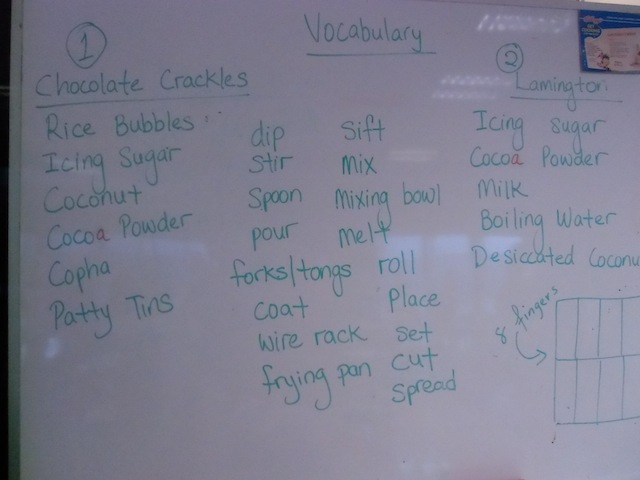 Vocabulary
1
Chocolate Crackles
Rice Bubbles
Icing Sugar
Coconut
Cocoa Powder
Copha
Patty Tins
dip
stir
Spoon
pour
forks/tongs
coat
wire rack
frying pan
Sift
mix
Mixing bowl
melt
roll
Place
set
cut
spread
2
Lamington
Icing sugar
Cocoa Powder
Milk
Boiling Water
Desiccated Coconu
8 fingers